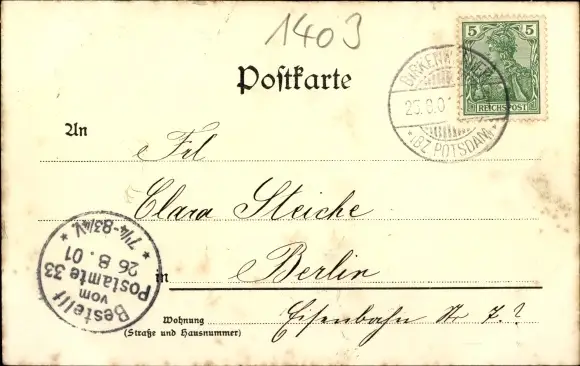 1403
5 5
REICHSPOST
BIRKENWERDER
25.8.01
* (BZ POTSDAM) *
Postkarte
An
Frl
Clara Steiche
in Berlin
Wohnung
(Straße und Hausnummer)
Eisenbahn Str 7.?
Bestellt
vom
Postamte 33
26 8. 01
* 7¼-8¾V. *